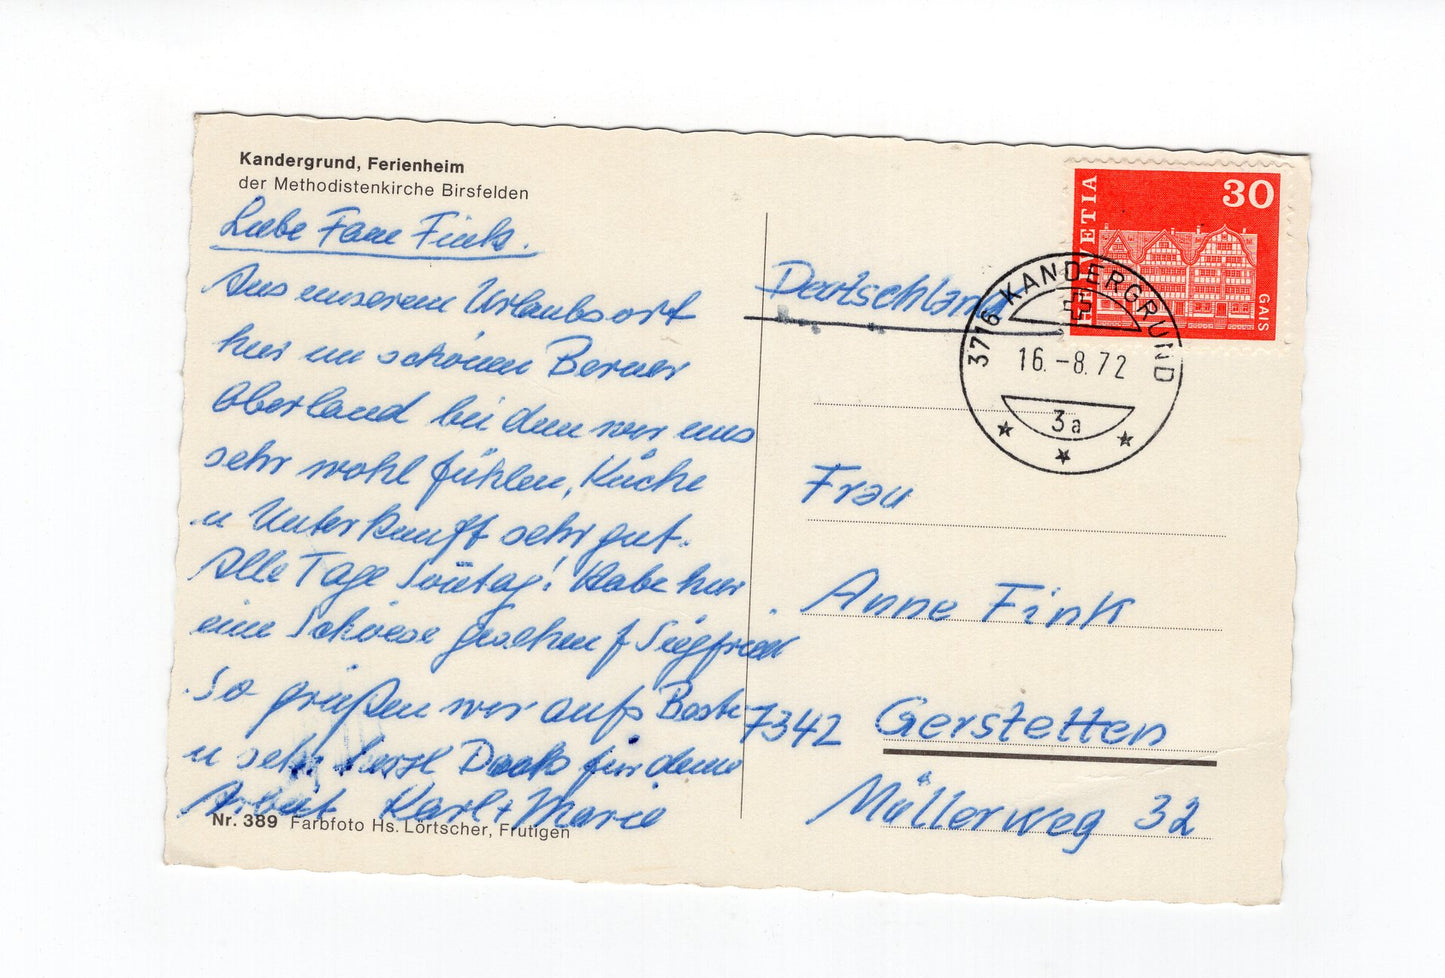 Kandergrund, Ferienheim
der Methodistenkirche Birsfelden
Liebe Frau Fink.
Aus unserem Urlaubsort
hier im schönen Berner
Oberland bei dem wir uns
sehr wohl fühlen, Küche
u Unterkunft sehr gut.
Alle Tage Sonntag! Habe hier
eine gesehen f Siegfried
So grüßen wir aufs Beste
u sehr herzl Dank für deine
Arbeit Karl + Marie
Nr. 389 Farbfoto Hs. Lörtscher, Frutigen
HELVETIA
30
GAIS
3716 KANDERGRUND
16.-8.72
3a
Deutschland
Frau
Anne Fink
7342 Gerstetten
Müllerweg 32